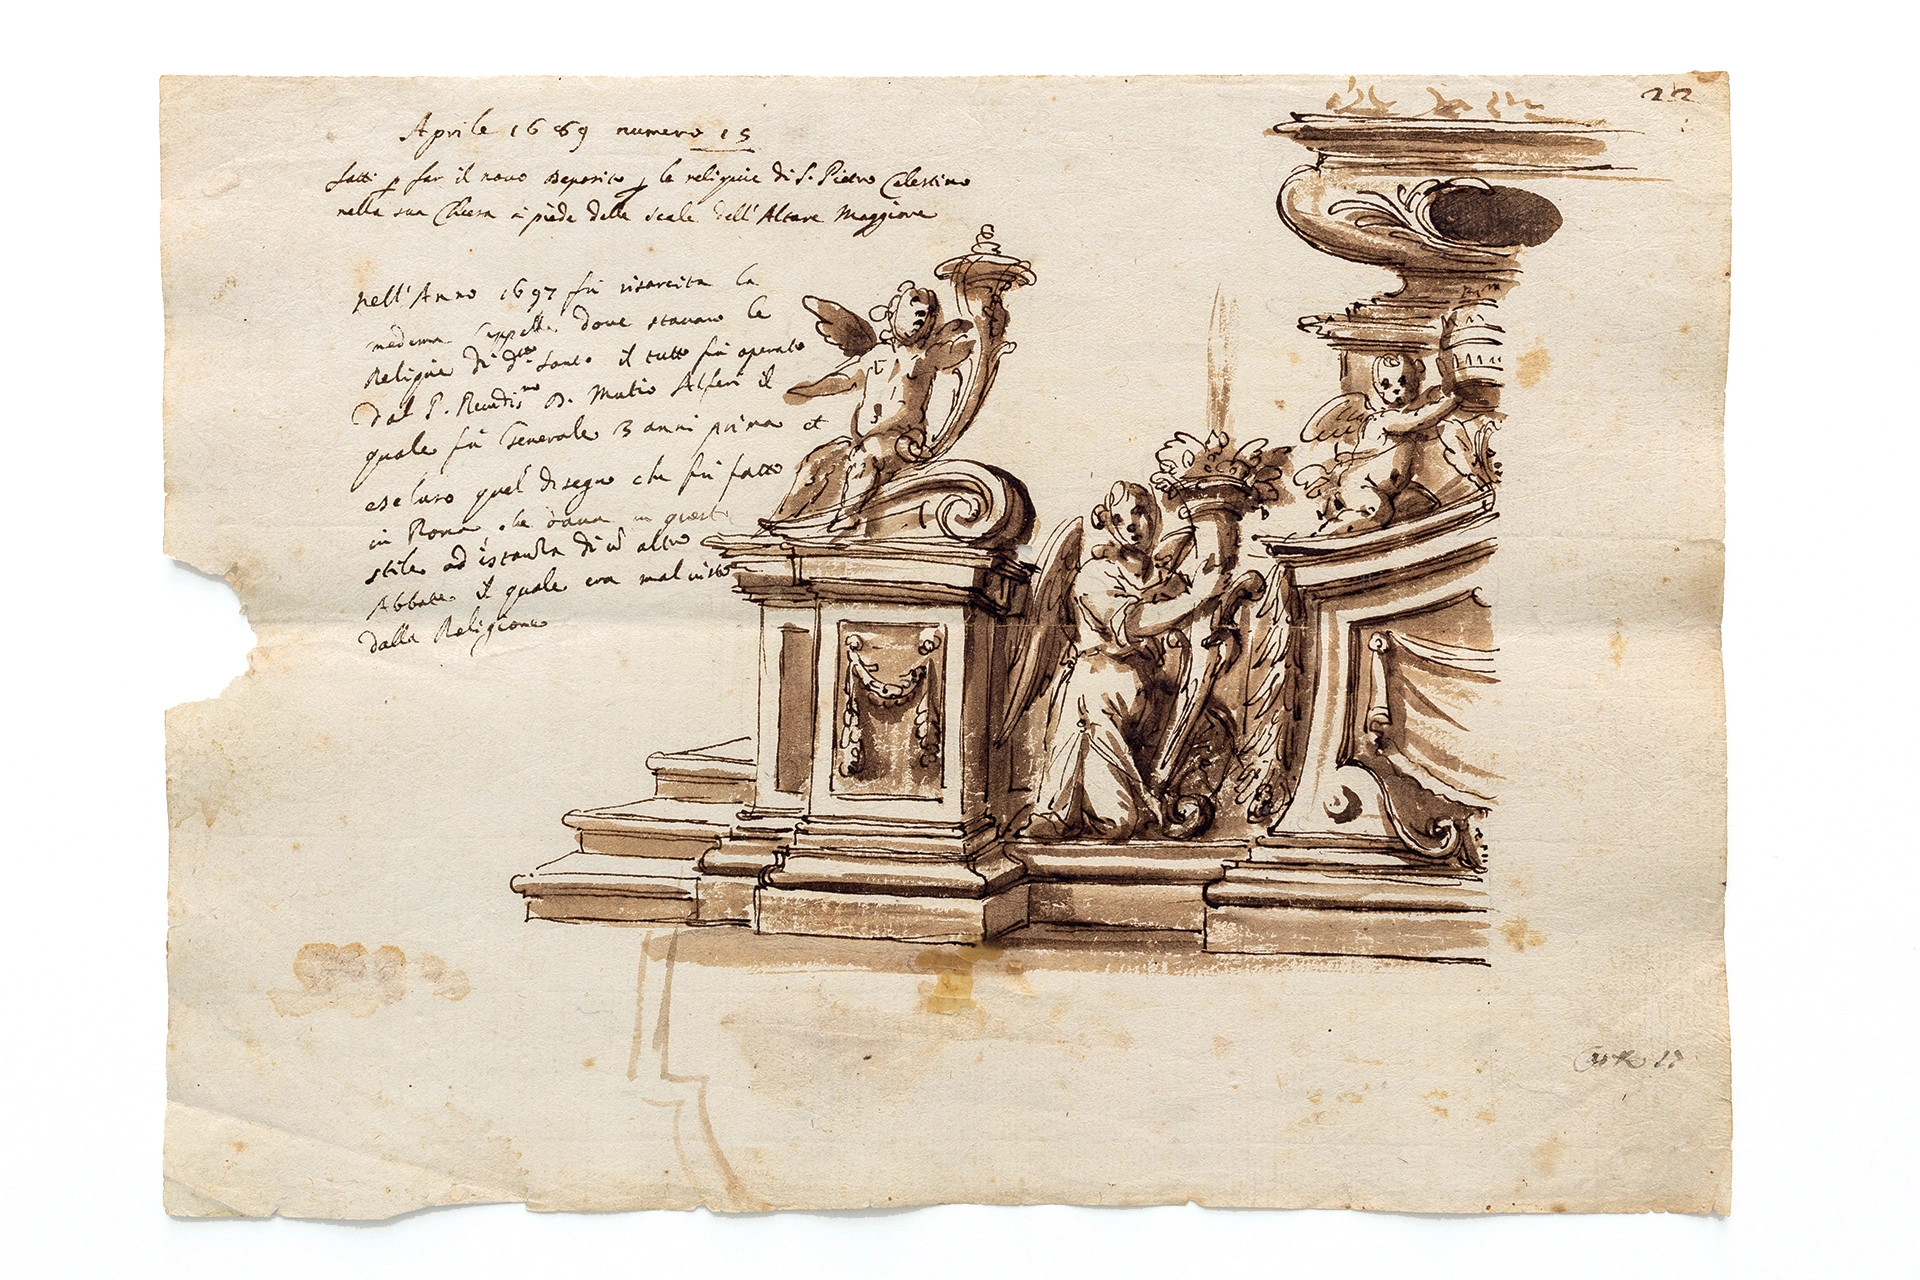 22
Aprile 1689 numero 15
fatti p far il novo Deposito p le reliquie di S. Pietro Celestino
nella sua Chiesa à piede delle scale dell'Altare Maggiore
nell'Anno 1697 fù risarcita la
medema Cappella dove stavano le
Reliquie di d.to Santo il tutto fù operato
dal P. Revdis.mo D. Mutio Alferi il
quale fù Generale 3 anni prima et
escluso quel disegno che fù fatto
in Roma che dava in questo
stile ad istanza di ũ altro
Abbate il quale era mal visto
dalla Religione